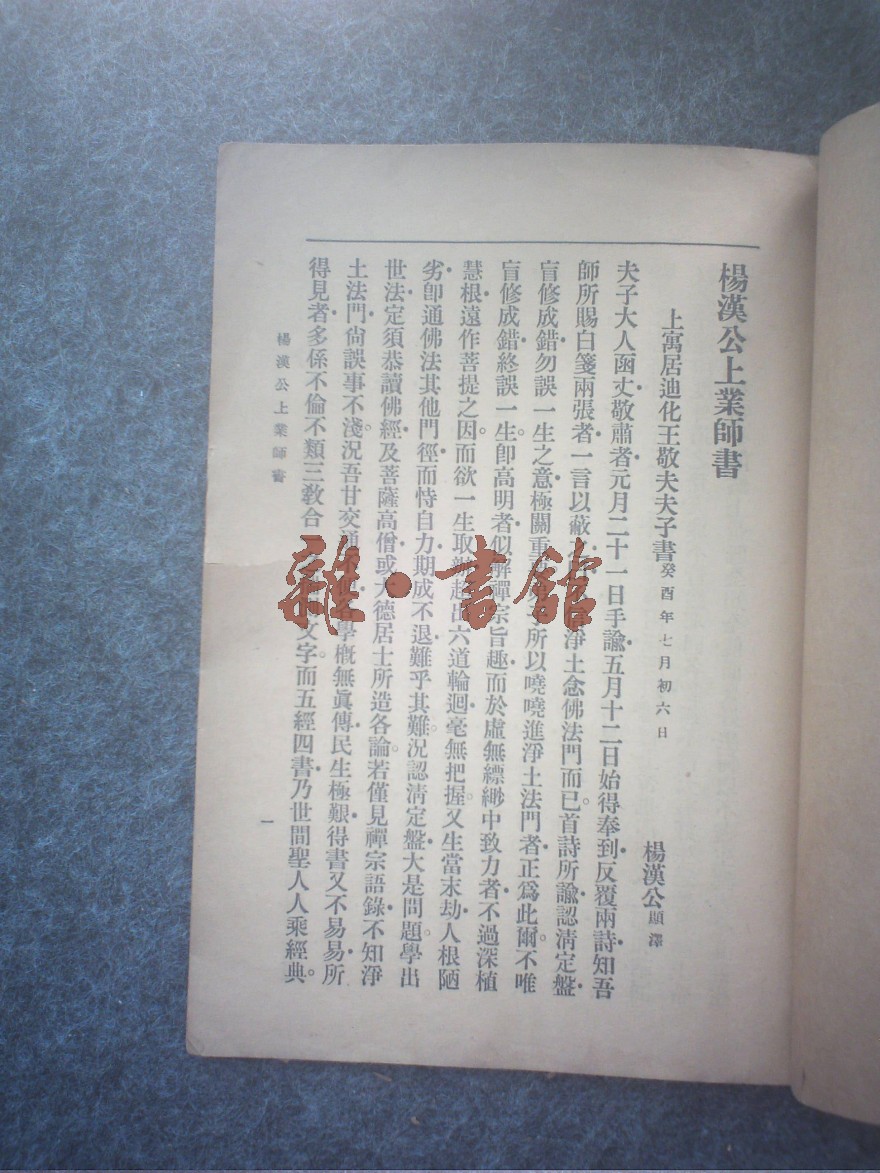 楊漢公上業師書
上寓居迪化王敬夫夫子書癸酉年七月初六日
楊漢公顯澤
夫子大人函丈敬肅者元月二十一日手諭五月十二日始得奉到反覆兩詩知吾
師所賜白箋兩張者一言以蔽 淨土念佛法門而已首詩所諭認淸定盤
盲修成錯勿誤一生之意極關重 所以嘵嘵進淨土法門者正爲此爾不唯
盲修成錯終誤一生卽高明者似解禪宗旨趣而於虛無縹緲中致力者不過深植
慧根遠作菩提之因而欲一生取辦超出六道輪迴毫無把握又生當末劫人根陋
劣卽通佛法其他門徑而恃自力期成不退難乎其難況認淸定盤大是問題學出
世法定須恭讀佛經及菩薩高僧或大德居士所造各論若僅見禪宗語錄不知淨
土法門尙誤事不淺況吾甘交通 學槪無眞傳民生極艱得書又不易易所
得見者多係不倫不類三敎合 文字而五經四書乃世間聖人人乘經典
楊漢公上業師書
一
雜·書館